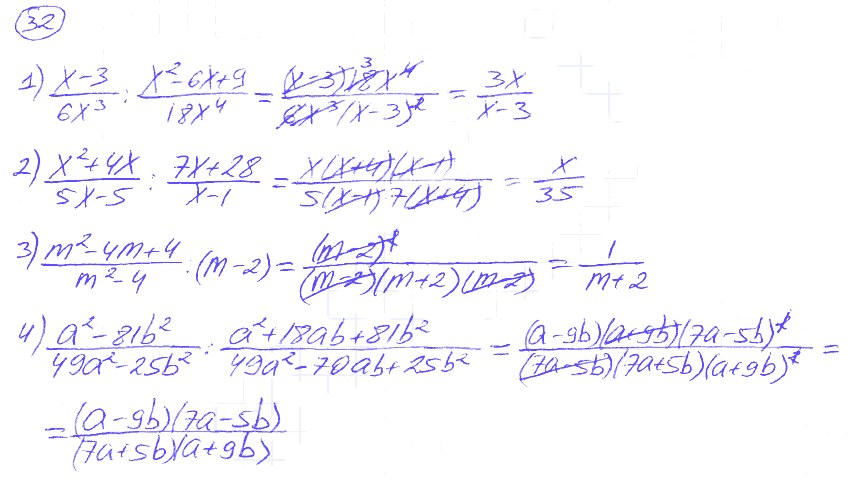 32
1) \frac{x-3}{6x^3} : \frac{x^2-6x+9}{18x^4} = \frac{(x-3)18x^4}{6x^3(x-3)^2} = \frac{3x}{x-3}
2) \frac{x^2+4x}{5x-5} : \frac{7x+28}{x-1} = \frac{x(x+4)(x-1)}{5(x-1)7(x+4)} = \frac{x}{35}
3) \frac{m^2-4m+4}{m^2-4} : (m-2) = \frac{(m-2)^2}{(m-2)(m+2)(m-2)} = \frac{1}{m+2}
4) \frac{a^2-81b^2}{49a^2-25b^2} : \frac{a^2+18ab+81b^2}{49a^2-70ab+25b^2} = \frac{(a-9b)(a+9b)(7a-5b)^2}{(7a-5b)(7a+5b)(a+9b)^2} =
= \frac{(a-9b)(7a-5b)}{(7a+5b)(a+9b)}